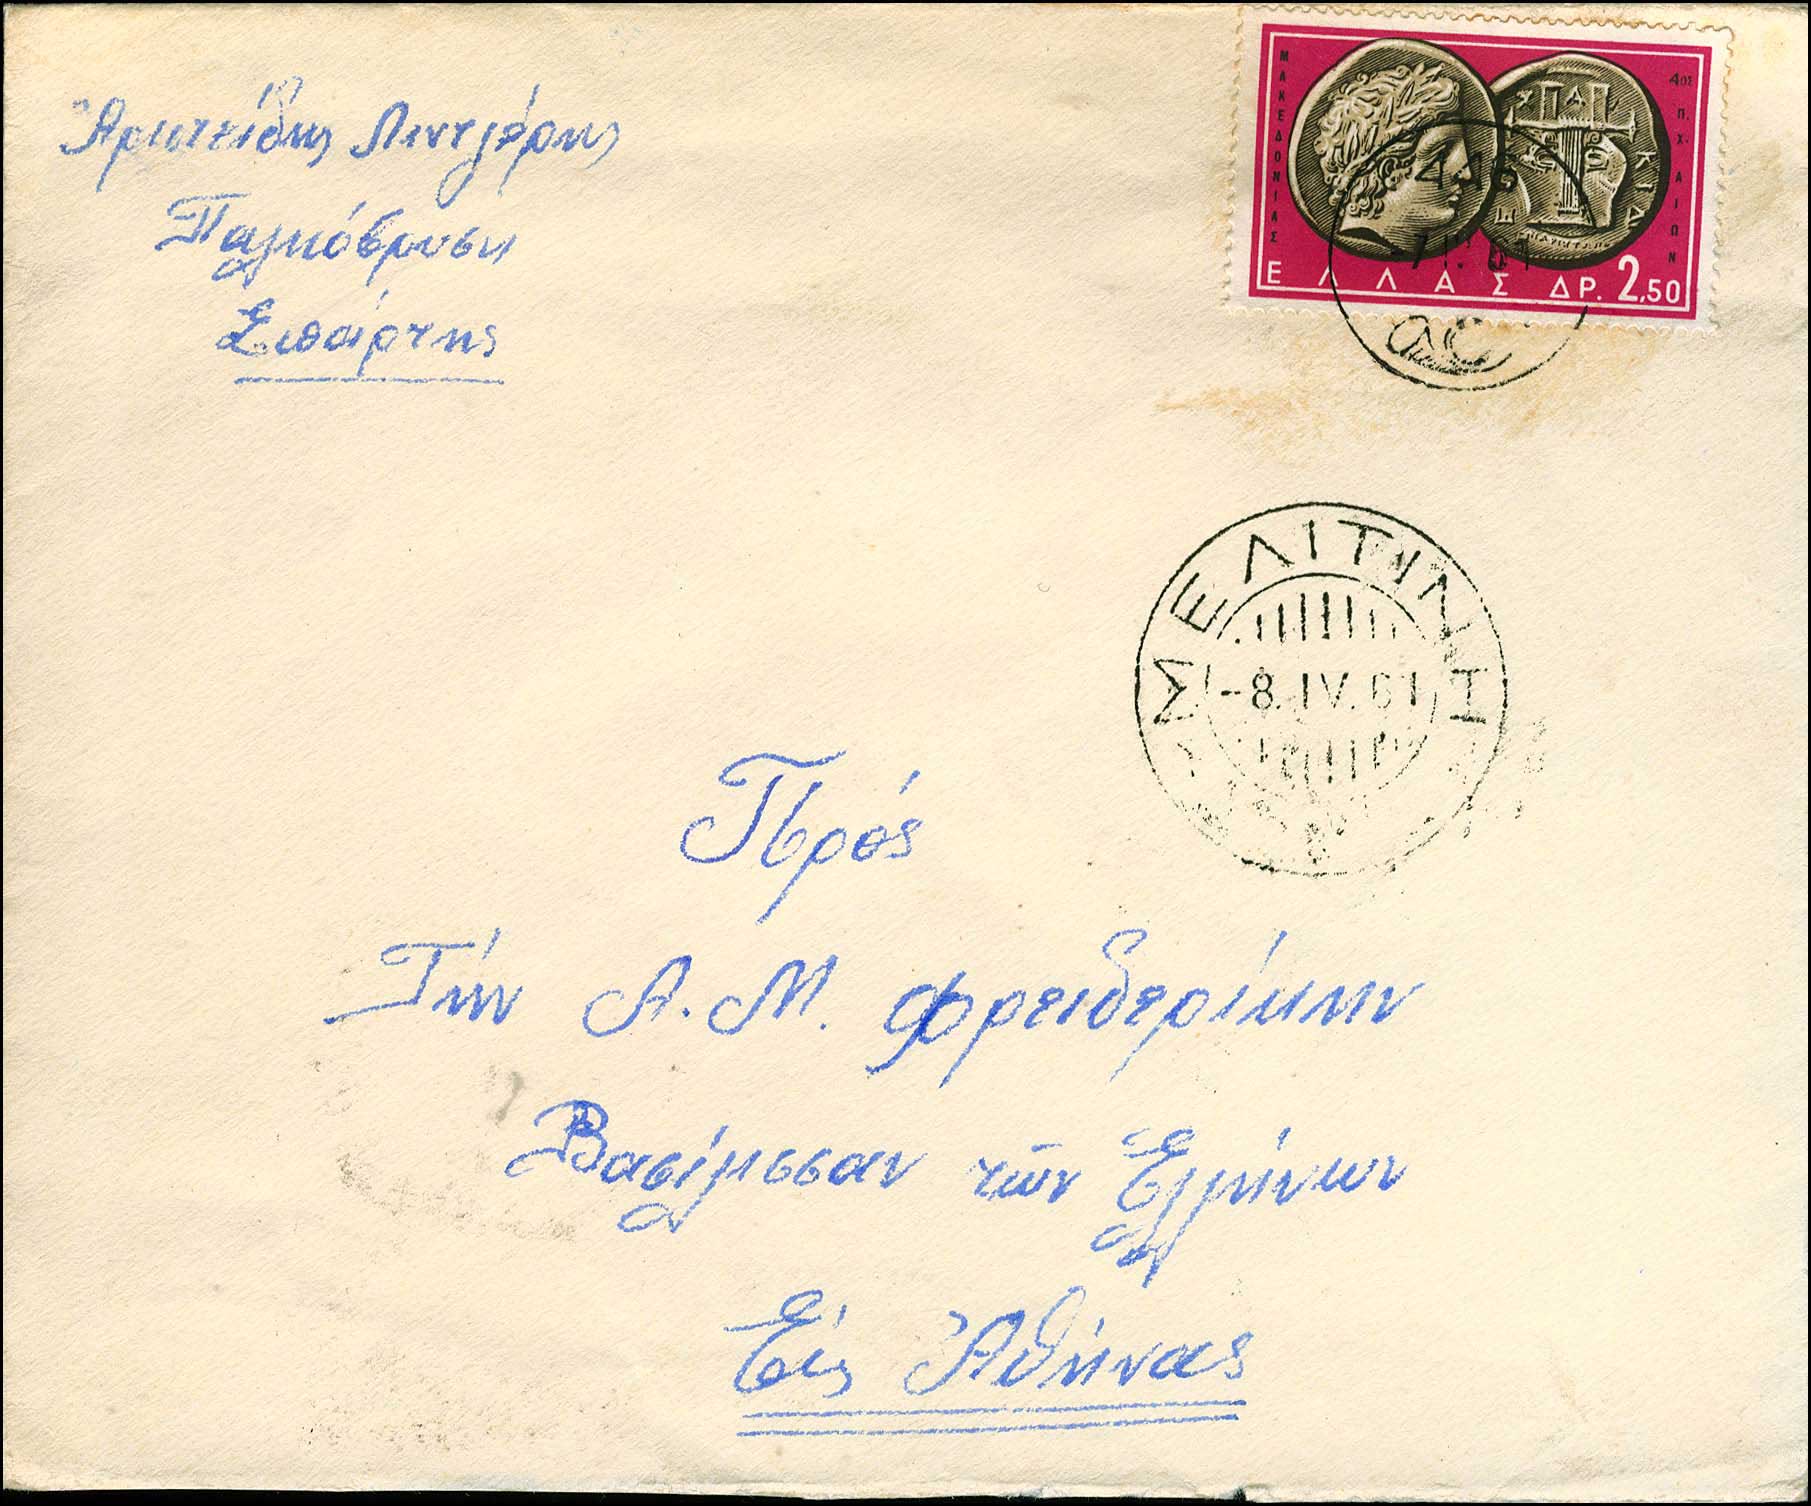 Ἀριστείδης Λεντζέρης
Παλιόβρυση
Σπάρτης
ΜΑΚΕΔΟΝΙΑΣ
4ΟΣ Π.Χ. ΑΙΩΝ
ΕΛΛΑΣ ΔΡ. 2,50
445
ΜΕΛΙΤΙΝΗ
-8.IV.61
Πρός
Τήν Α.Μ. Φρειδερίκην
Βασίλισσαν τῶν Ἑλλήνων
Εἰς Ἀθήνας